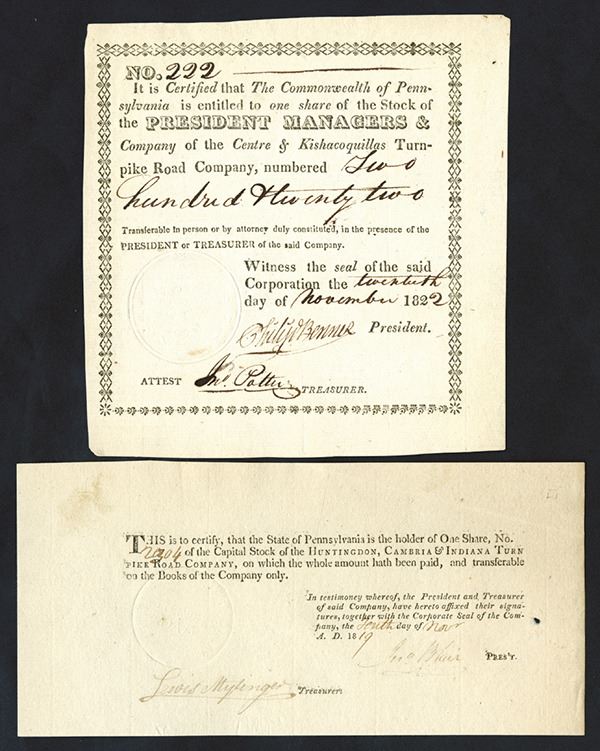 NO. 222
It is Certified that The Commonwealth of Penn-
sylvania is entitled to one share of the Stock of
the PRESIDENT MANAGERS &
Company of the Centre & Kishacoquillas Turn-
pike Road Company, numbered Two
hundred & twenty two
Transferable in person or by attorney duly constituted, in the presence of the
PRESIDENT or TREASURER of the said Company.
Witness the seal of the said
Corporation the twentieth
day of November 1822
Philip Benner President.
ATTEST Jno. Potter TREASURER.
THIS is to certify, that the State of Pennsylvania is the holder of One Share, No.
of the Capital Stock of the HUNTINGDON, CAMBRIA & INDIANA TURN
PIKE ROAD COMPANY, on which the whole amount hath been paid, and transferable
on the Books of the Company only.
In testimony whereof, the President and Treasurer
of said Company, have hereto affixed their signa-
tures, together with the Corporate Seal of the Com-
pany, the tenth day of Novr
A. D. 1819
Jno Blair PRES'T.
Lewis Mytinger Treasurer